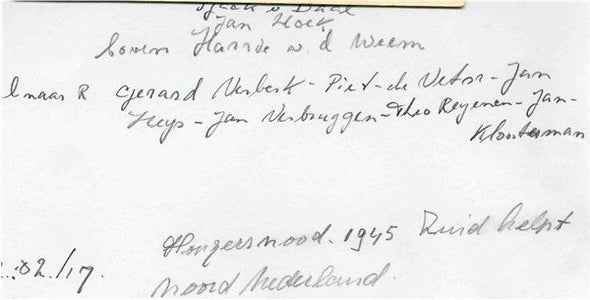 Jan Hoek
boven Harrie v d Weem
l naar R Gerard Verberk - Piet - de Vetor - Jan
Heys - Jan Verbruggen - Theo Reynen - Jan -
Kloosterman
Hongersnood. 1945 Zuid helpt
Noord Nederland.
..:02./17.